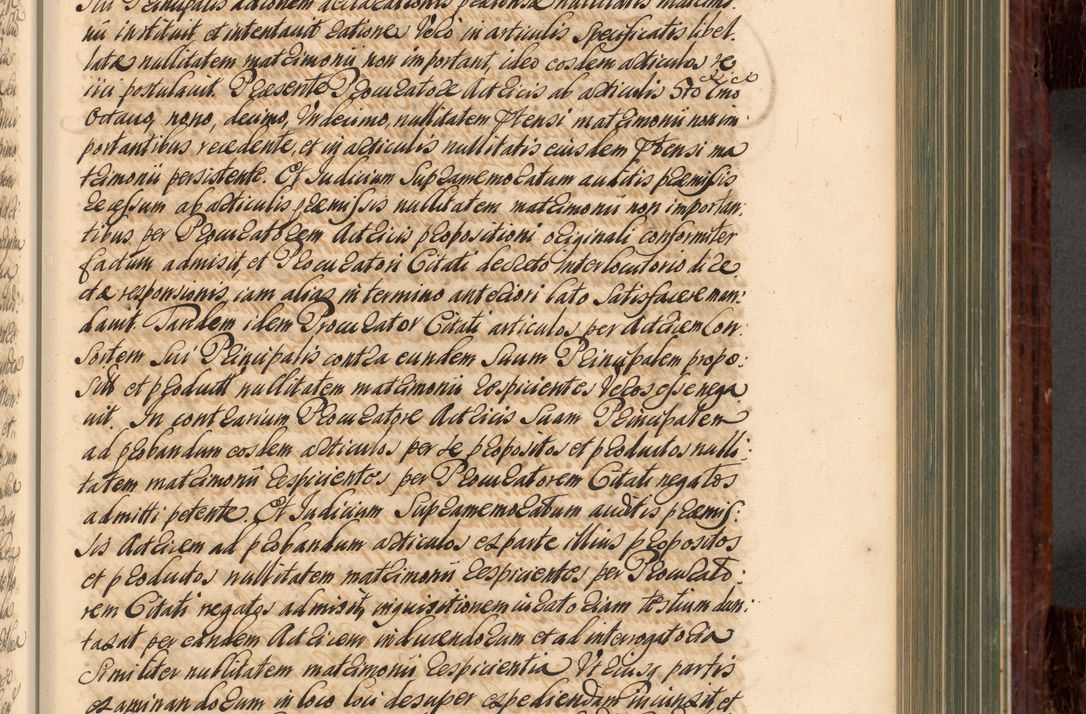 Sui Principalis actionem declarationis prætensæ nullitatis matrimo:
nii instituit et intentavit ratione Vero in articulis Specificatis libel:
latæ nullitatem matrimonii non important, ideo eosdem articulos re
iici postulavit. Præsente Procuratore Actricis ab articulis
Octavo, nono, decimo, Undecimo, nullitatem Ptensi matrimonii non im:
portantibus recedente, et in articulis nullitatis eiusdem Ptensi ma
trimonii persistente. Et Judicium Supramemoratum auditis præmissis
recessum ab articulis præmissis nullitatem matrimonii non importan:
tibus per Procuratorem Actricis propositioni originali conformiter
factum admisit, et Procuratori Citati decreto Interlocutorio dire
ctæ responsionis, iam alias in termino anteriori lato Satisfacere man:
davit. Tandem idem Procurator Citati articulos per Actricem Con:
Sortem Sui Principalis contra eundem Suum Principalem propo:
Sitos et productos nullitatem matrimonii respicientes Veros esse nega
vit. In contrarium Procuratore Actricis Suam Principalem
ad probandum eosdem articulos per se propositos et productos nulli:
tatem matrimonii respicientes per Procuratorem Citati negatos
admitti petente. Et Judicium Supramemoratum auditis præmis:
sis Actricem ad probandum articulos ex parte illius propositos
et productos nullitatem matrimonii respicientes per Procurato:
rem Citati negatos admisit, inquisitionem iurato etiam testium dun:
taxat per eandem Actricem inducendorum et ad interrogatoria
Similiter nullitatem matrimonii respicientia Utriusq partis
examinandorum in loco loci desuper expediendam iniunxit et